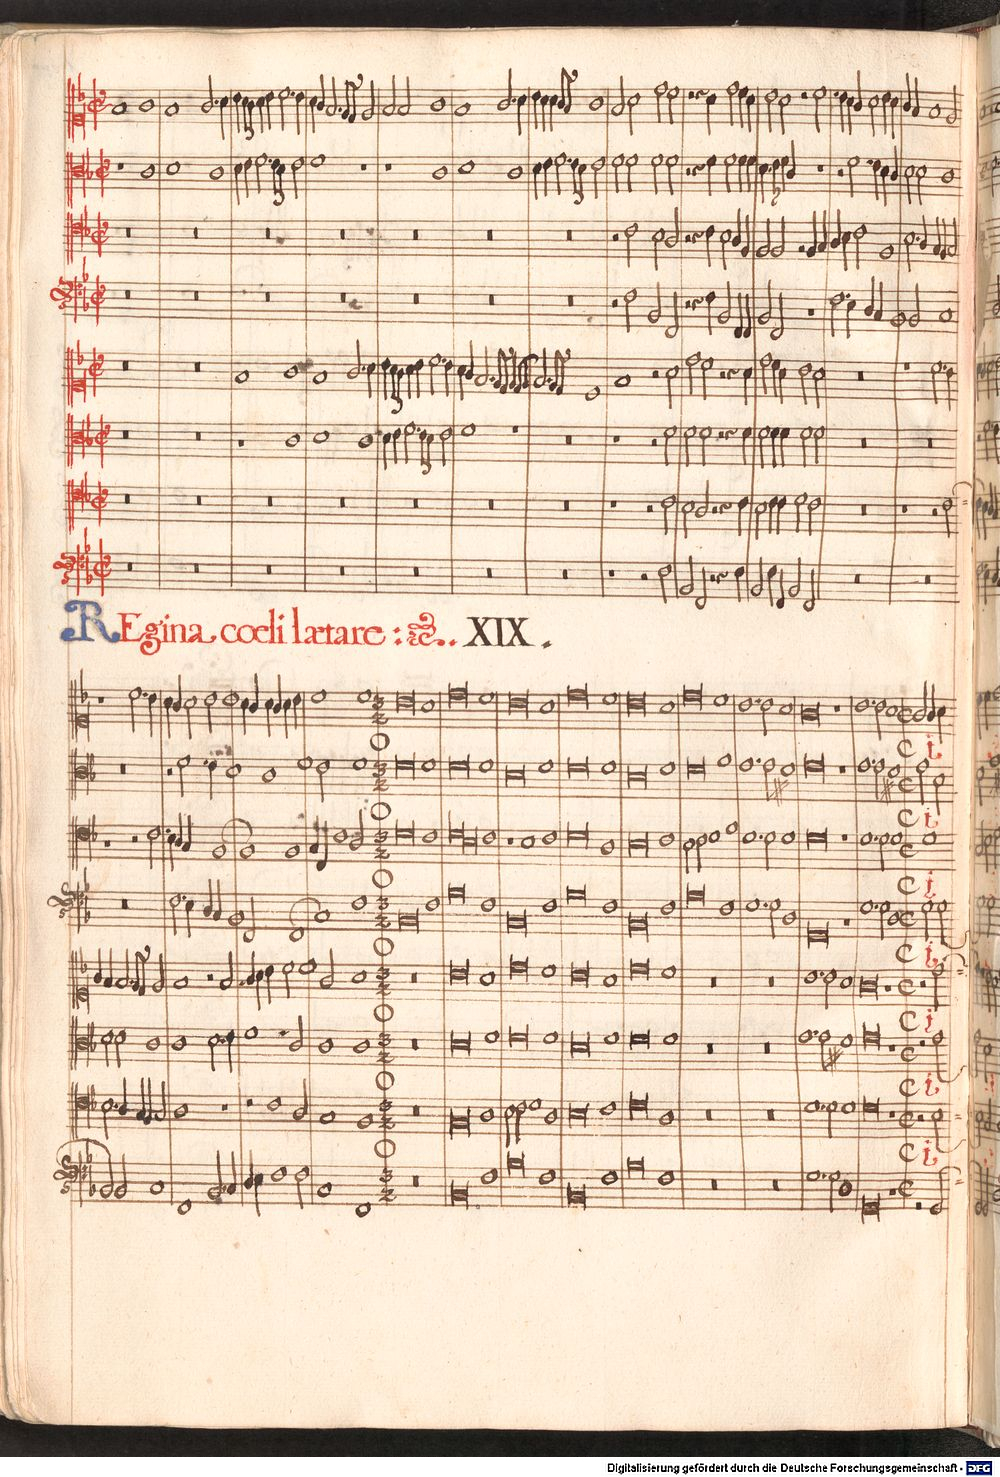 REgina coeli lætare : XIX .
Digitalisierung gefördert durch die Deutsche Forschungsgemeinschaft - DFG